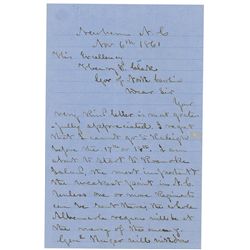 Newbern N.C
Nov 6th 1861
His Excellency
Henry T. Clark
Gov of North Carolina
Dear Sir
Your
very kind letter is most grate-
fully appreciated. I regret
that I cannot go to Raleigh
before the 17th or 18th. I am
about to start to Roanoke
Island, the most important &
the weakest point in N.C.
Unless one or more Regiments
can be sent there, the whole
Albemarle region will be at
the mercy of the enemy.
Genl Huger will